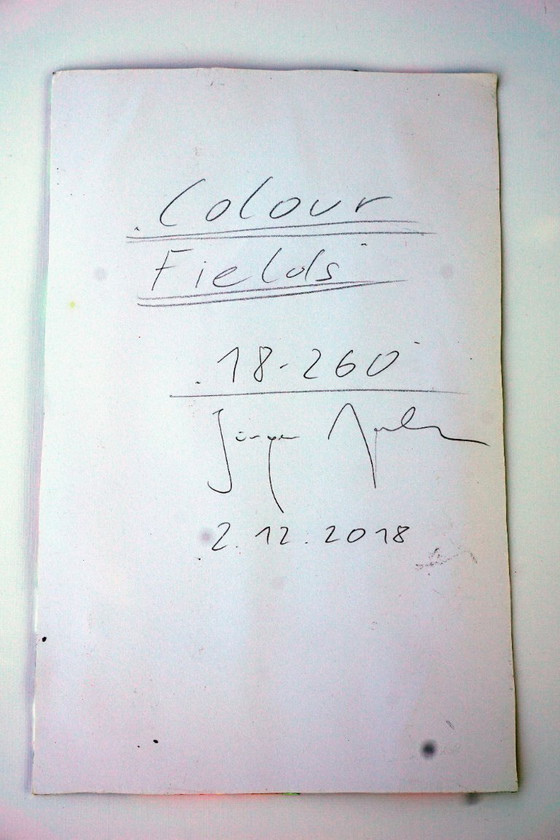 Colour
Fields
18-260
Jürgen
2.12.2018